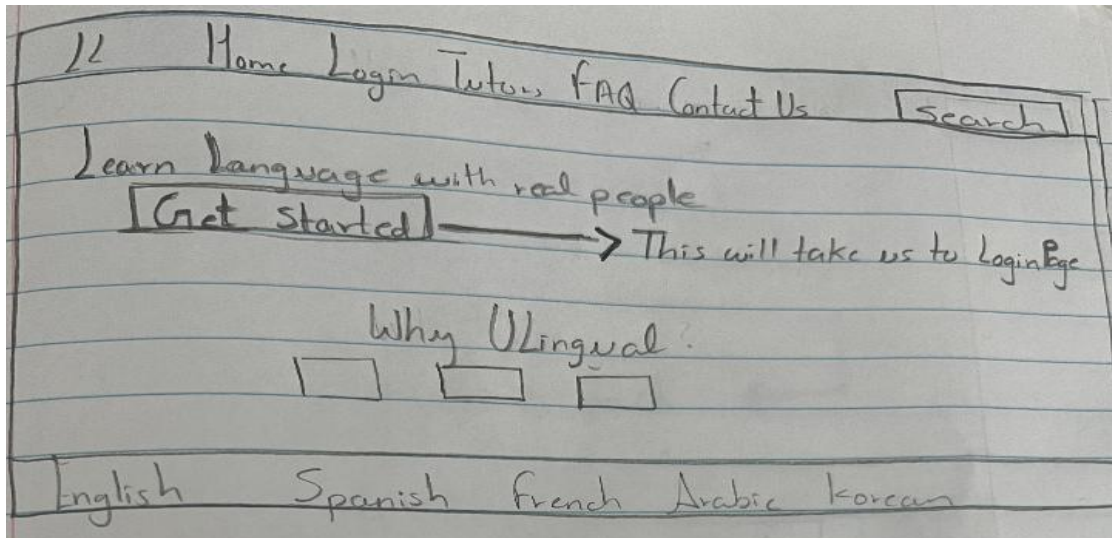 Home Login Tutors FAQ Contact Us Search
Learn Language with real people
Get Started → This will take us to Login Page
Why ULingual?
English Spanish French Arabic Korean